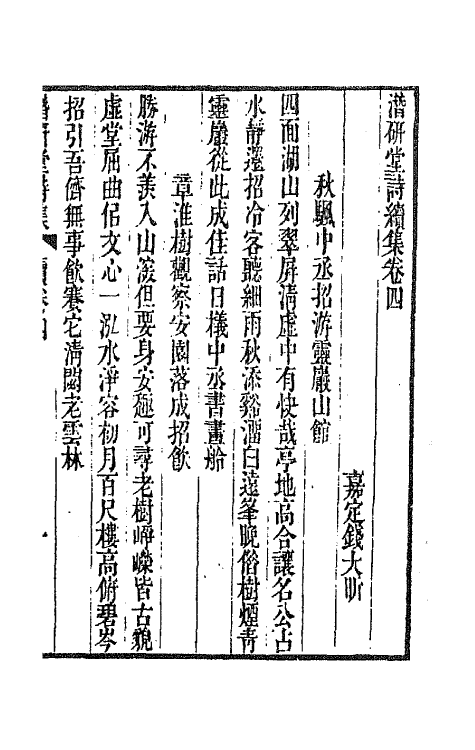 潛研堂詩續集卷四
嘉定錢大昕
秋颿中丞招游靈巖山館
四面湖山列翠屏淸虛中有快哉亭地高合讓名公占
水靜還招冷客聽細雨秋添谿溜白遠峯晚俗樹煙靑
靈巖從此成佳話日樣中丞書畫船
章淮樹觀察安園落成招飲
勝游不羨入山深但要身安穩可尋老樹崢嶸皆古貌
虛堂屈曲侶文心一泓水淨容初月百尺樓高俯碧岑
招引吾儕無事飲賽它淸閟老雲林
潛研堂詩集
續卷四
一